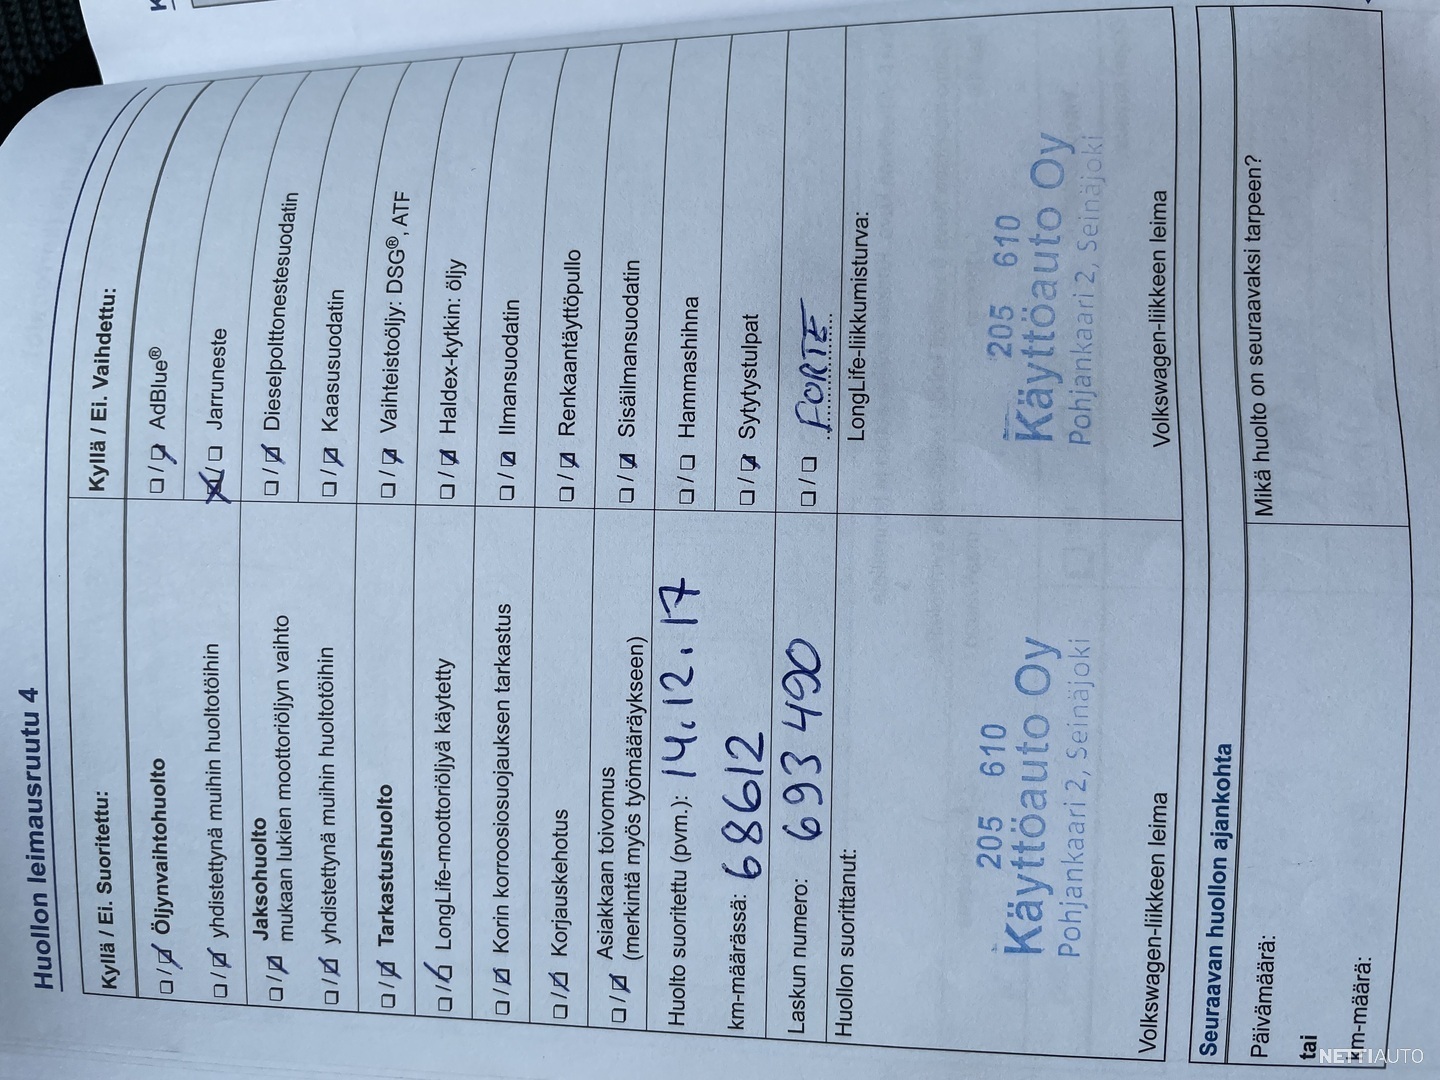 Huollon leimausruutu 4
Kyllä / Ei. Suoritettu:
Öljynvaihtohuolto
yhdistettynä muihin huoltotöihin
Jaksohuolto
mukaan lukien moottoriöljyn vaihto
yhdistettynä muihin huoltotöihin
Tarkastushuolto
LongLife-moottoriöljyä käytetty
Korin korroosiosuojauksen tarkastus
Korjauskehotus
Asiakkaan toivomus
(merkintä myös työmääräykseen)
Huolto suoritettu (pvm.): 14.12.17
km-määrässä: 68612
Laskun numero: 693 490
Huollon suorittanut:
205 610
Käyttöauto Oy
Pohjankaari 2, Seinäjoki
Volkswagen-liikkeen leima
Kyllä / Ei. Vaihdettu:
AdBlue®
Jarruneste
Dieselpolttonestesuodatin
Kaasusuodatin
Vaihteistoöljy: DSG®, ATF
Haldex-kytkin: öljy
Ilmansuodatin
Renkaantäyttöpullo
Sisäilmansuodatin
Hammashihna
Sytytystulpat
FORTE
LongLife-liikkumisturva:
205 610
Käyttöauto Oy
Pohjankaari 2, Seinäjoki
Volkswagen-liikkeen leima
Seuraavan huollon ajankohta
Päivämäärä:
tai
km-määrä:
Mikä huolto on seuraavaksi tarpeen?
NETTIAUTO